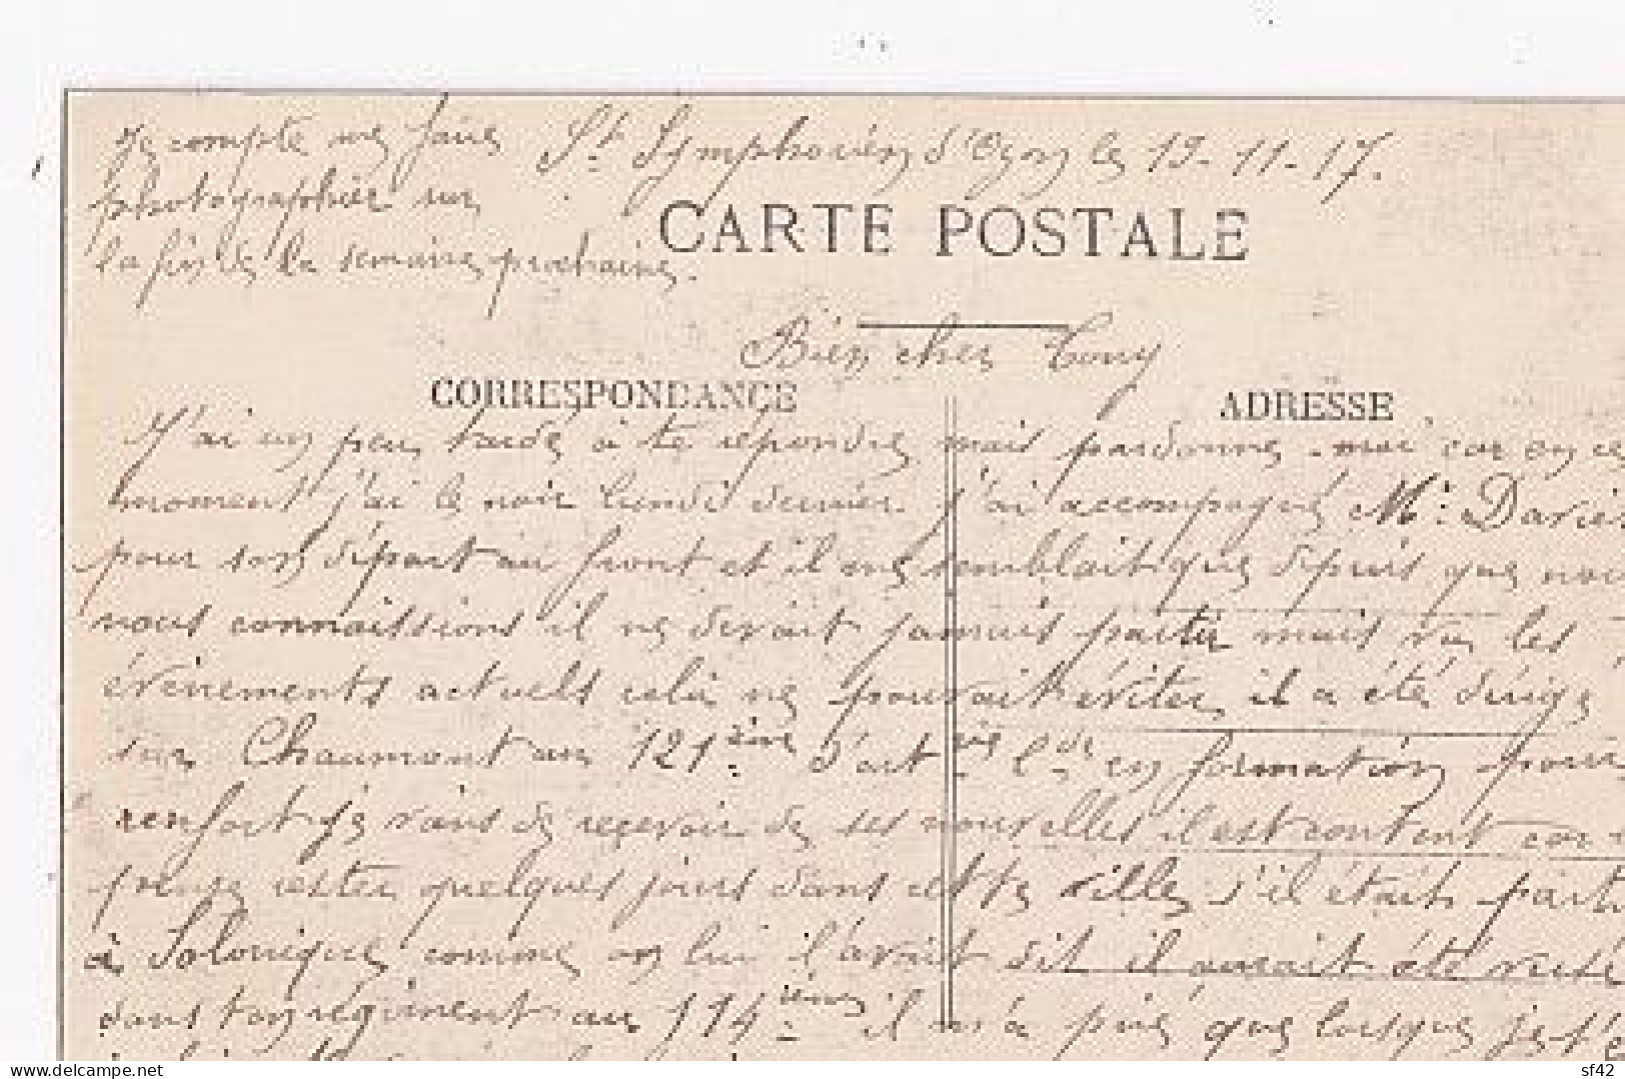 Je compte me faire
photographier sur
la fin de la semaine prochaine.
St. Symphorien d'Ozon le 19-11-17.
CARTE POSTALE
Bien cher Tony
CORRESPONDANCE
ADRESSE
J'ai un peu tardé à te répondre mais pardonne-moi car en ce
moment j'ai le noir lundi dernier j'ai accompagné Mr. Darier
pour son départ au front et il me semblait que depuis que nous
nous connaissions il ne devait jamais partir mais vu les
évènements actuels cela ne pouvait éviter il a été dirigé
sur Chaumont au 121ème d'artie lde en formation pour
renfort je viens de recevoir de ses nouvelles il est content car
pense rester quelques jours dans cette ville s'il était parti
à Salonique comme on lui l'avait dit il aurait été versé
dans ton régiment au 114ième il m'a prié que lorsque je t'é
www.delcampe.net
sf42